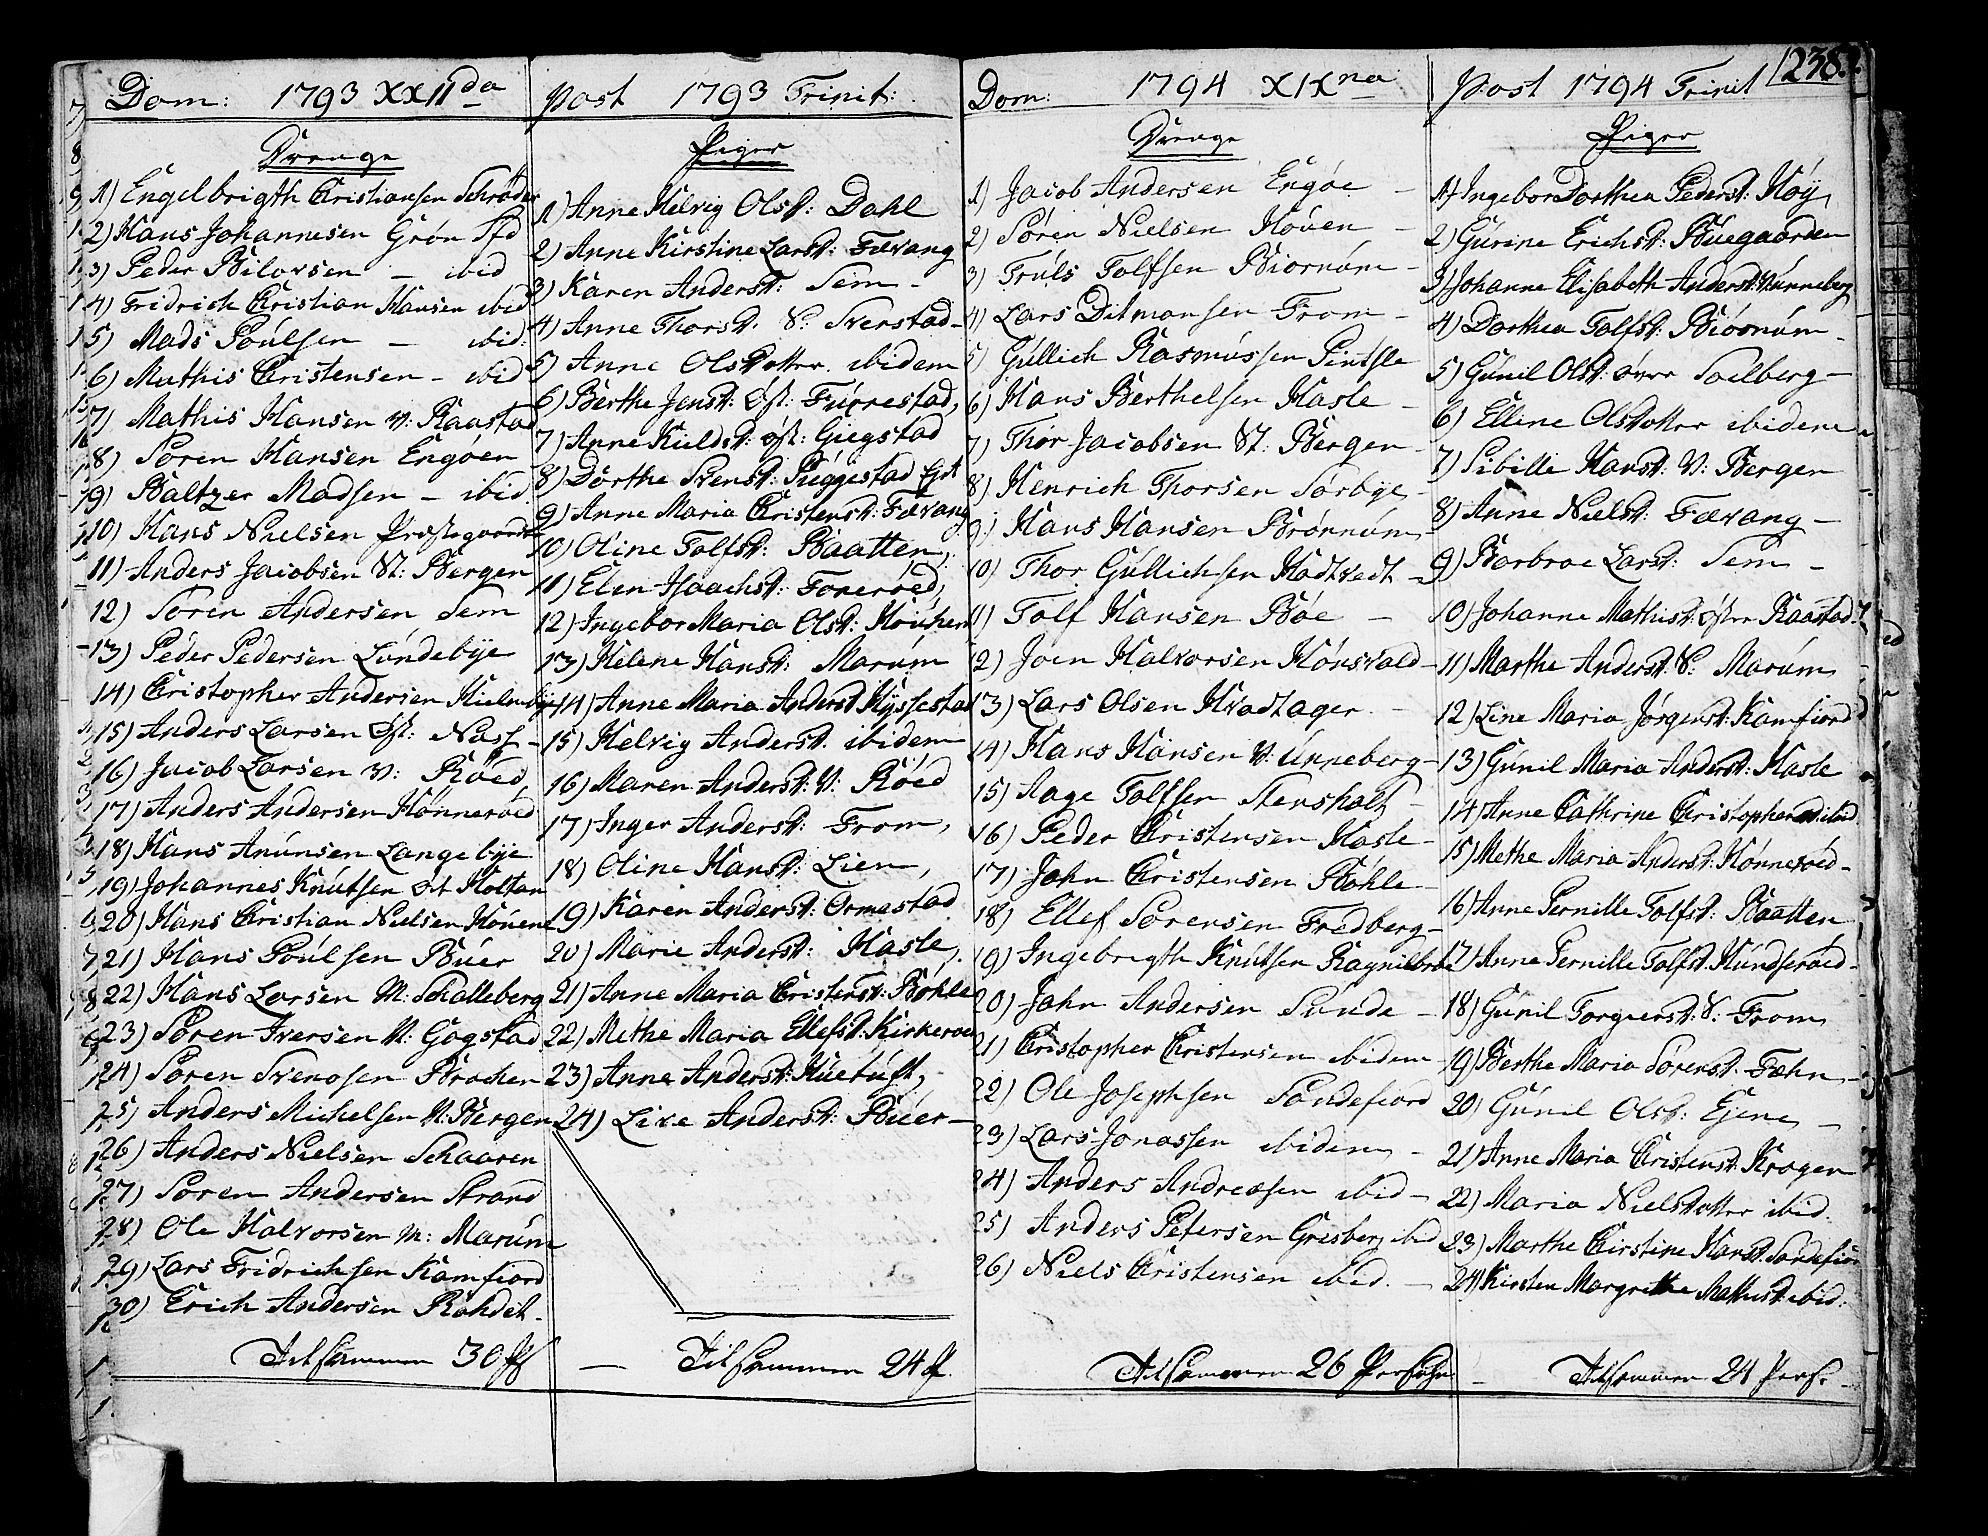 Dom: 1793 XXIIda
Drenge
1) Engelbrigth Christiansen Schrøder
2) Hans Johannesen Grøn Sfd
3) Peder Bilovsen — ibid
4) Fridrich Christian Hansen ibid
5) Mads Poúlsen — ibid:
6) Mathis Christensen — ibid
7) Mathis Hansen v: Raastad
8) Søren Hansen Engøen
9) Baltzer Madsen — ibid.
10) Hans Nielsen Præstegaarden
11) Anders Jacobsen St: Bergen
12) Søren Andersen Sem
13) Peder Pedersen Lúndebÿe
14) Christopher Andersen Hielmbÿe
15) Anders Larsen Øst: Næss —
16) Jacob Larsen v: Røed
17) Anders Andersen Hönnerøed
18) Hans Anúnsen Langebÿe
19) Johannes Knútsen Holtan
20) Hans Christian Nielsen Hoúen
21) Hans Poúlsen Búer
22) Hans Larsen M: Schalleberg
23) Søren Iversen N: Gogstad
24) Søren Svenosen Brachen
25) Anders Michelsen N: Bergen
26) Anders Nielsen Schaaren
27) Søren Andersen Strand
28) Ole Halvorsen M: Marúm
29) Lars Fridrichsen Kamfiord
30) Erich Andersen Rohdet.
Tilsammen 30 Ps
post 1793 Trinit:
Piger
1) Anne Helvig Olsd: Dahl
2) Anne Kirstine Larsd: Fævang
3) Karen Andersd: Sem —
4) Anne Thorsd. V: Sverstad —
5) Anne Olsdatter ibidem
6) Berthe Jensd: Øst: Fúrrestad,
7) Anne Kieldsd: Øst: Giegstad
8) Dorthe Svensd: Púggestad
9) Anne Maria Christensd: Fævang
10) Oline Tolfsd: Baatten,
11) Elen Isaachsd: Forerøed,
12) Ingebor Maria Olsd:
13) Helene Hansd: Marúm
14) Anne Maria Andersd Hÿssestad
15) Helvig Andersd. ibidem
16) Maren Andersd: V: Røed
17) Inger Andersd: From,
18) Oline Hansd: Lien,
19) Karen Andersd: Ormestad
20) Marie Andersd: Hasle,
21) Anne Maria Christensd: Bøhle
22) Methe Maria Ellefsd: Kirkerøe
23) Anne Andersd: Húetúft,
24) Live Andersd: Búer —
— Tilsammen 24 P.
Dom: 1794 XIXna
Drenge
1) Jacob Andersen Engøe —
2) Søren Nielsen Hoúen —
3) Trúls Tolfsen Biornúm —
4) Lars Ditmansen From —
5) Gúllich Rasmússen Pindsle
6) Hans Berthelsen Hasle —
7) Thor Jacobsen St: Bergen —
8) Henrich Thorsen Sørbÿe —
9) Hans Hansen Brønnúm —
10) Thor Gúllichsen Hadtvedt —
11) Tolf Hansen Bøe —
12) Joen Halvorsen Hønsvald —
13) Lars Olsen Hvadtager —
14) Hans Hansen v: únneberg —
15) Aage Tolfsen Stensholt —
16) Peder Christensen Hasle —
17) John Christensen Bøhle —
18) Ellef Sørensen Fredberg —
19) Ingebrigth Knútsen Ragnilbroe
20) John Andersen Súnde —
21) Christopher Christensen ibidem —
22) Ole Josephsen Sandefiord
23) Lars Jonassen ibidem —
24) Anders Andreasen ibid —
25) Anders Petersen Gresberg ibid
26) Niels Christensen ibid. —
Tilsammen 26 Persohn —
post 1794 Trinit 238.
Piger
1) Ingebor Dorthea Pedersd: Høÿ
2) Gúrine Erichsd: Búegaarden
3) Johanne Elisabeth Andersd: únneberg
4) Dorthea Tolfsd: Biørnúm —
5) Gúnil Olsd: øvre Solberg —
6) Elline Olsdatter ibidem
7) Sibille Hansd: V: Bergen
8) Anne Nielsd: Fævang —
9) Barbroe Larsd: Sem —
10) Johanne Mathisd: Østre Raastad
11) Marthe Andersd: V: Marúm
12) Line Maria Jørgensd: Kamfiord
13) Gúnil Maria Andersd: Hasle
14) Anne Cathrine Christophersd ibid
15) Methe Maria Andersd: Hönnerøed —
16) Anne Pernille Tolfsd: Baatten
17) Anne Pernille Tolfsd: Húndserøed —
18) Gúnil Torgiersd: V: From
19) Berthe Maria Sørensd: Fæhn —
20) Gúnil Olsd: Ejene —
21) Anne Maria Christensd: Krogen
22) Maria Nielsdatter ibid.
23) Marthe Cirstine Hansd: Sandefior
24) Kirsten Margrethe Mathisd: ibid:
— Tilsammen 24 Pers. —